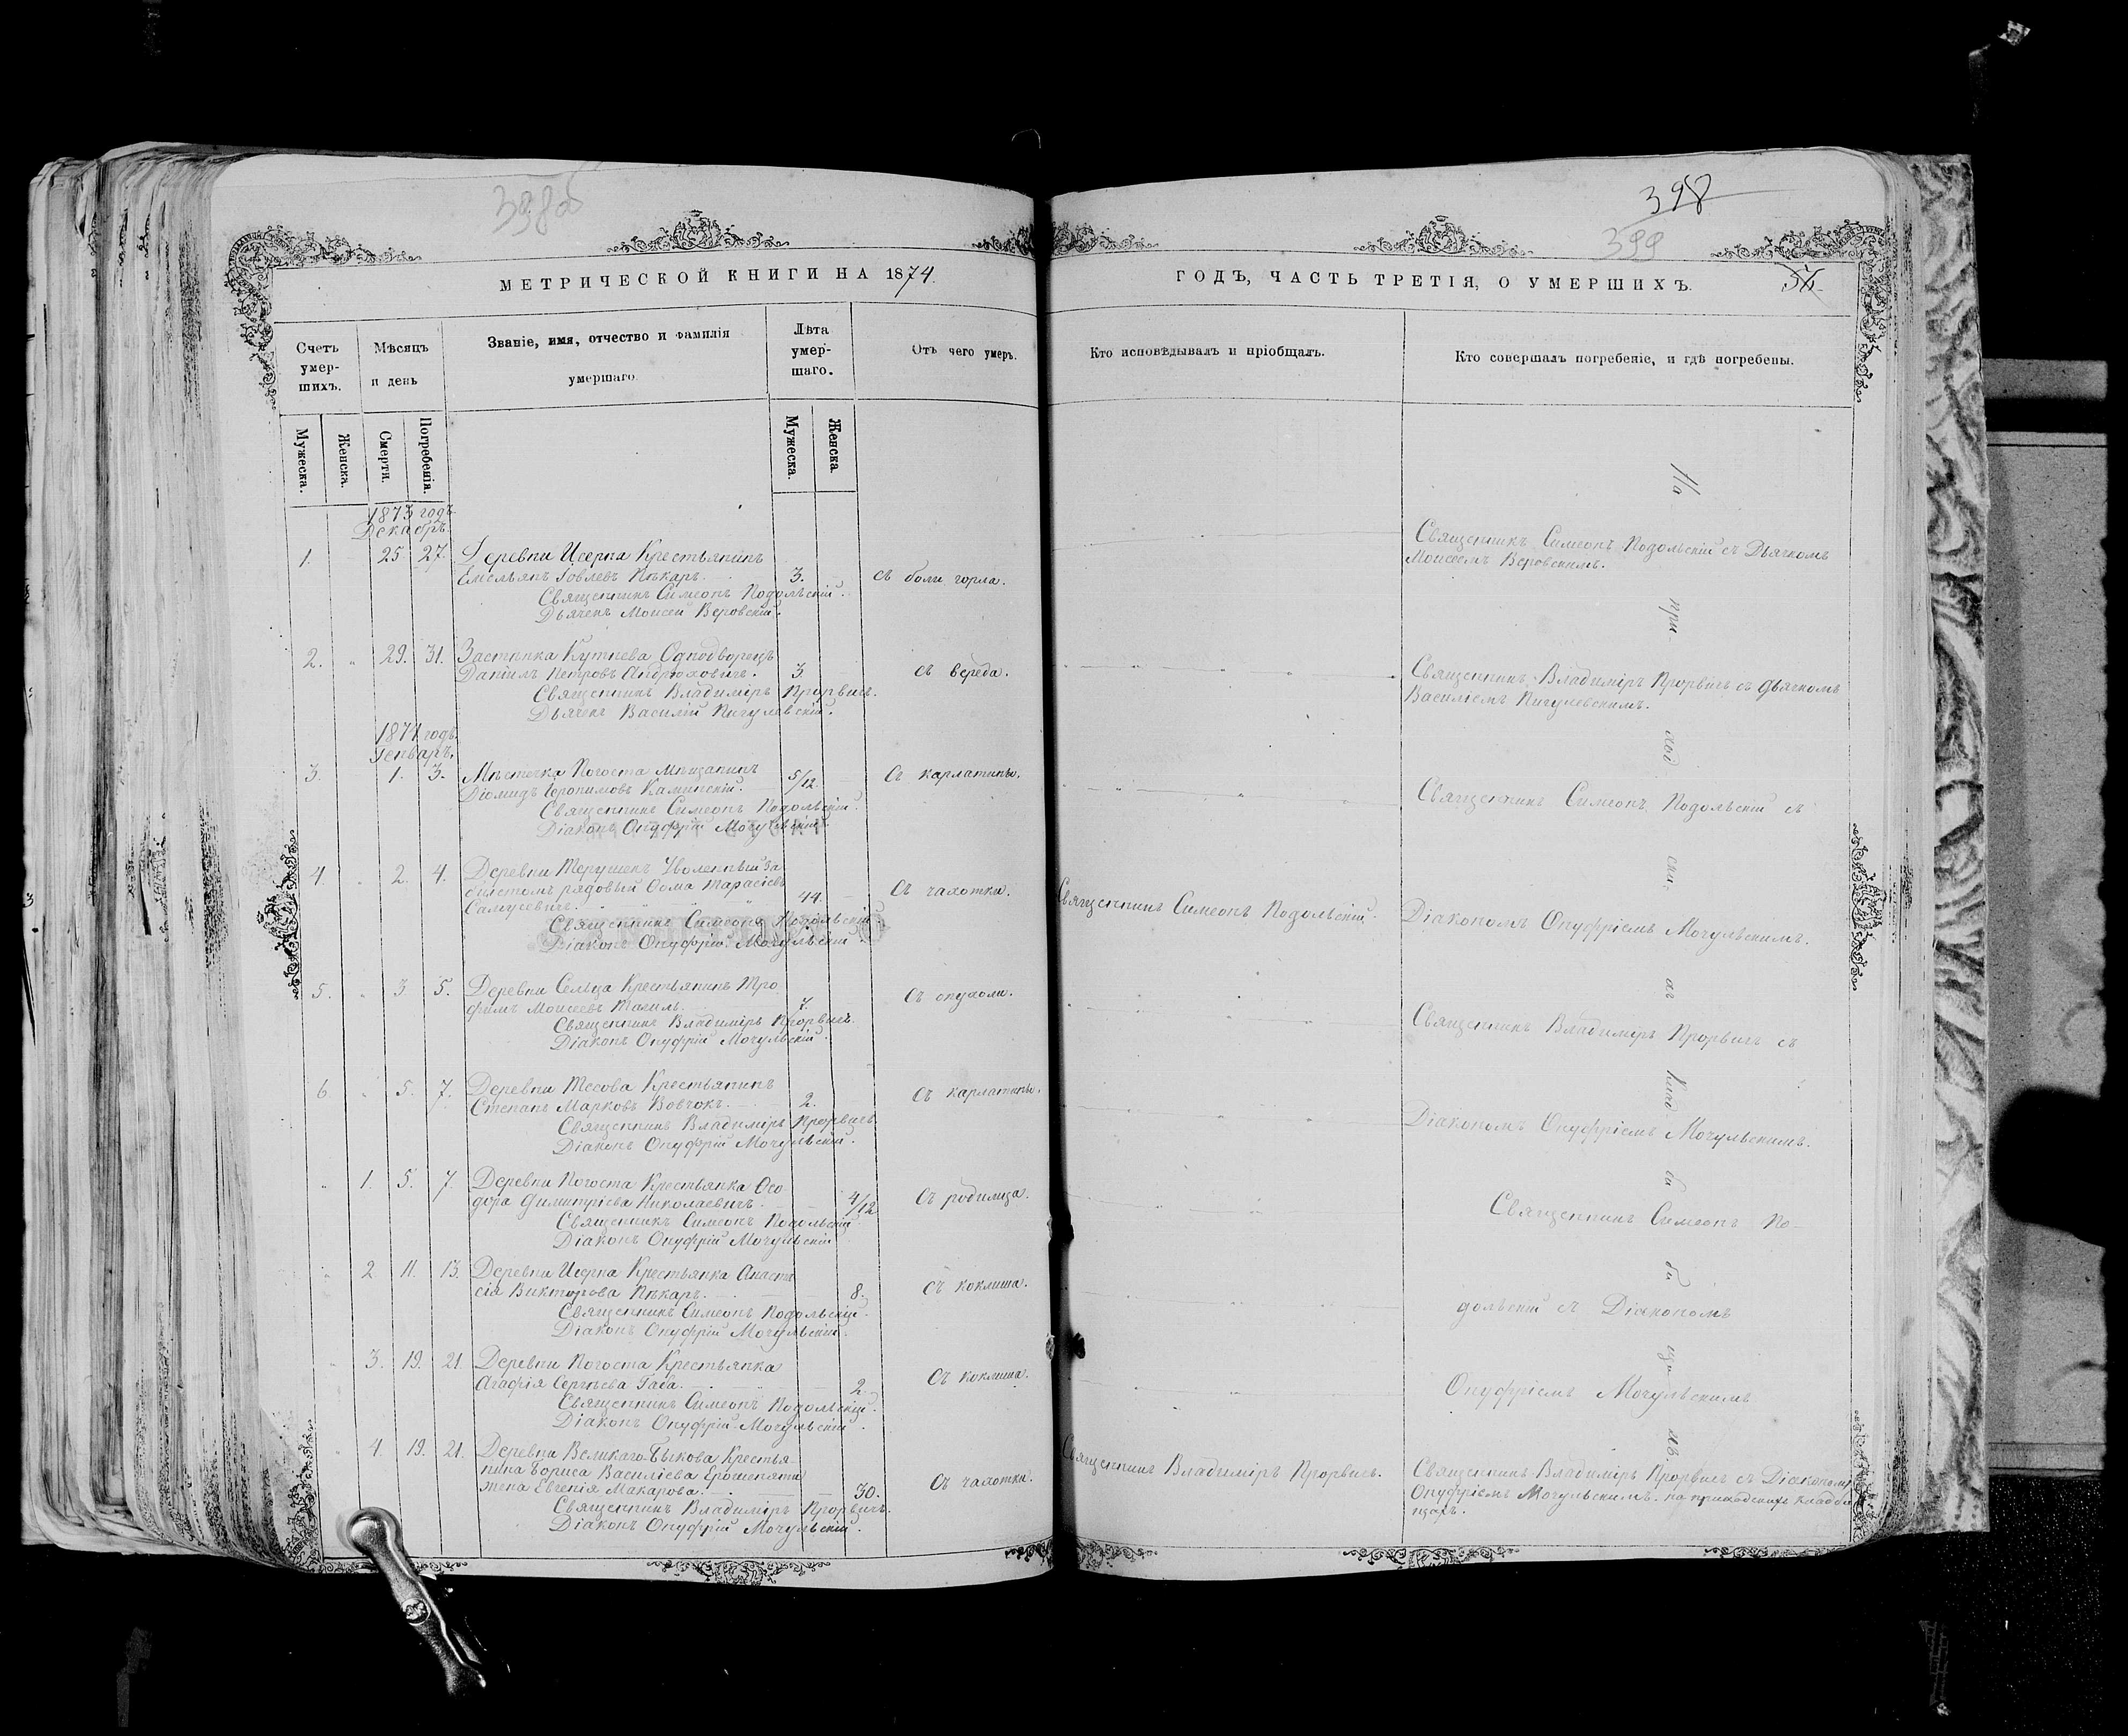 398об
398
399
МЕТРИЧЕСКОЙ КНИГИ НА 1874.
ГОДЪ, ЧАСТЬ ТРЕТІЯ, О УМЕРШИХЪ.
Счетъ умер-шихъ.
Мѣсяцъ и день
Званіе, имя, отчество и фамилія умершаго.
Лѣта умер-шаго.
Отъ чего умеръ.
Кто исповѣдывалъ и пріобщалъ.
Кто совершалъ погребеніе, и гдѣ погребены.
Мужеска. Женска. Смерти. Погребенія. Мужеска. Женска.
1873 годъ
Декабрь.
1. 25 27. Деревни Исерна Крестьянинъ
Емельянъ Іовлевъ Пѣкаръ. 3. съ боли горла.
Священникъ Симеонъ Подольскій.
Дьячекъ Моисей Веровскій.
Священникъ Симеонъ Подольскій съ Дьячкомъ
Моисеемъ Веровскимъ.
2. " 29. 31. Застѣнка Кутнева Однодворецъ
Даніилъ Петровъ Андрюховичъ. 3. съ вереда.
Священникъ Владиміръ Прорвичъ.
Дьячекъ Василій Пигулевскій.
Священникъ Владиміръ Прорвичъ съ Дьячкомъ
Василіемъ Пигулевскимъ.
1874 годъ.
Генварь.
3. 1. 3. Мѣстечка Погоста Мѣщанинъ
Діомидъ Іеронимовъ Каминскій. 5/12 Съ карлатины.
Священникъ Симеонъ Подольскій.
Діаконъ Онуфрій Мочульскій.
Священникъ Симеонъ Подольскій съ
4. " 2. 4. Деревни Терушекъ Уволенный за
билетомъ рядовый Ѳома Тарасіевъ
Самусевичъ. 44. Съ чахотки.
Священникъ Симеонъ Подольскій
Діаконъ Онуфрій Мочульскій.
Священникъ Симеонъ Подольскій.
Діакономъ Онуфріемъ Мочульскимъ.
5. " 3 5. Деревни Сельца Крестьянинъ Тро
фимъ Моисеевъ 7. Съ опухоли.
Священникъ Владиміръ Прорвичъ.
Діаконъ Онуфрій Мочульскій.
Священникъ Владиміръ Прорвичъ съ
6 " 5. 7. Деревни Тесова Крестьянинъ
Степанъ Марковъ Вовчокъ. 2. Съ карлатины.
Священникъ Владиміръ Прорвичъ
Діаконъ Онуфрій Мочульскій.
Діакономъ Онуфріемъ Мочульскимъ.
" 1. 5. 7. Деревни Погоста Крестьянка Ѳео
дора Димитріева Николаевичъ. 4/12 Съ родимца.
Священникъ Симеонъ Подольскій
Діаконъ Онуфрій Мочульскій
Священникъ Симеонъ По-
" 2 11. 13. Деревни Исерна Крестьянка Анаста
сія Викторова Пѣкаръ. 8. Съ коклюша.
Священникъ Симеонъ Подольскій.
Діаконъ Онуфрій Мочульскій.
дольскій съ Діакономъ
" 3. 19. 21 Деревни Погоста Крестьянка
Агафія Сергѣева Габа. 2. Съ коклюша.
Священникъ Симеонъ Подольскій.
Діаконъ Онуфрій Мочульскій.
Онуфріемъ Мочульскимъ
" 4. 19. 21. Деревни Великаго-Быкова Крестья-
нина Бориса Василіева Ерошеняти
жена Евгенія Макарова. 30. Съ чахотки.
Священникъ Владиміръ Прорвичъ.
Діаконъ Онуфрій Мочульскій.
Священникъ Владиміръ Прорвичъ.
Священникъ Владиміръ Прорвичъ съ Діакономъ
Онуфріемъ Мочульскимъ. на приходскихъ кладби
щахъ.
На при ход ски ах клад